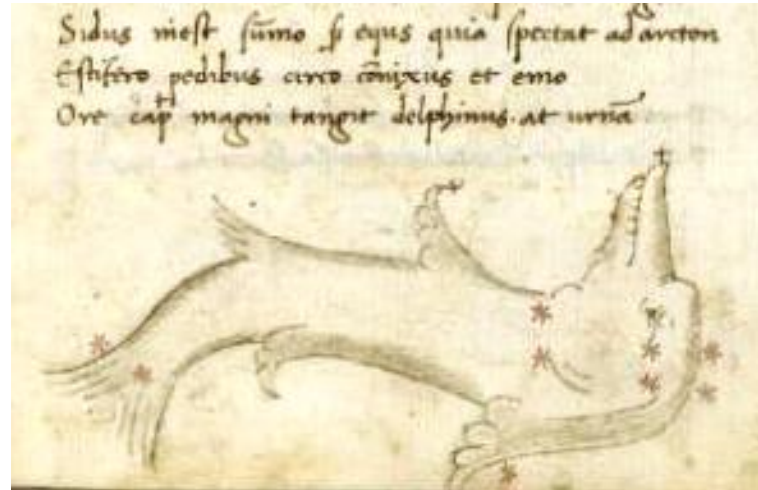 Sidus inest sūmo equs quia spectat ad arcton
Estifero pedibus circo cōnixus et emo
Ore magni tangit delphinus. at urnā